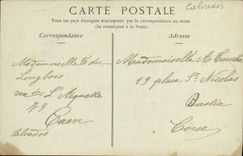 Calvados
CARTE POSTALE
Tous les pays étrangers n'acceptent pas la correspondance au recto.
(Se renseigner à la Poste)
Correspondance
Adresse
Mademoiselle
Longbois
rue St
79
Caen
Calvados
Mademoiselle A
19 place St Nicolas
Bastia
Corse